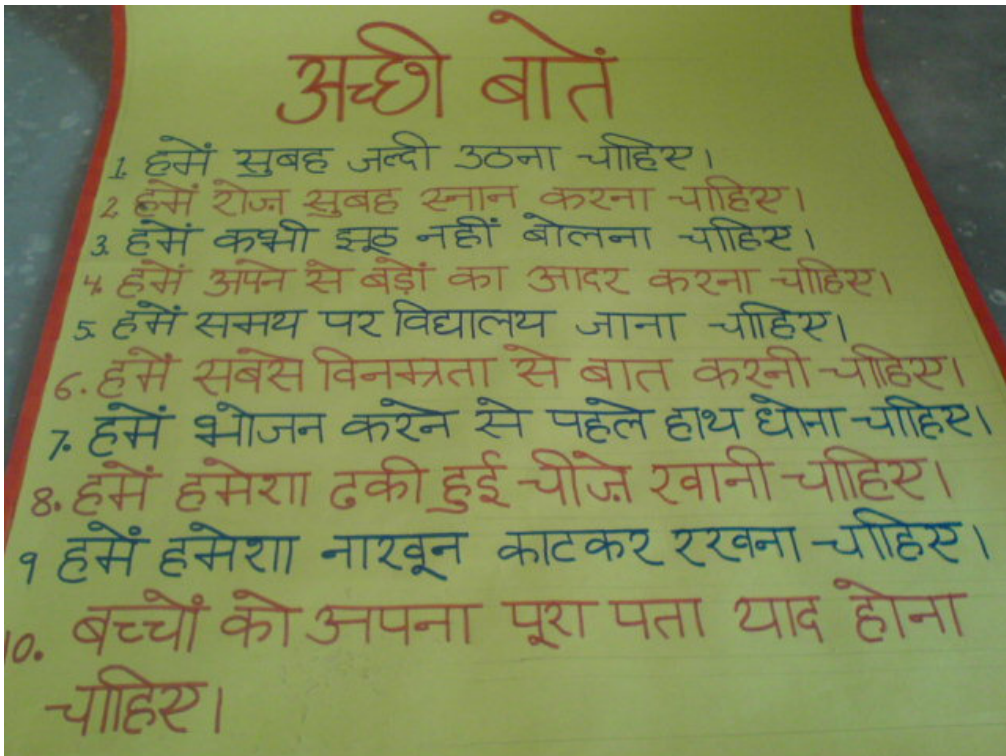 अच्छी बातें
1. हमें सुबह जल्दी उठना चाहिए।
2. हमें रोज सुबह स्नान करना चाहिए।
3. हमें कभी झूठ नहीं बोलना चाहिए।
4. हमें अपने से बड़ों का आदर करना चाहिए।
5. हमें समय पर विद्यालय जाना चाहिए।
6. हमें सबसे विनम्रता से बात करनी चाहिए।
7. हमें भोजन करने से पहले हाथ धोना चाहिए।
8. हमें हमेशा ढकी हुई चीज़े खानी चाहिए।
9 हमें हमेशा नाखून काटकर रखना चाहिए।
10. बच्चों को अपना पूरा पता याद होना
चाहिए।